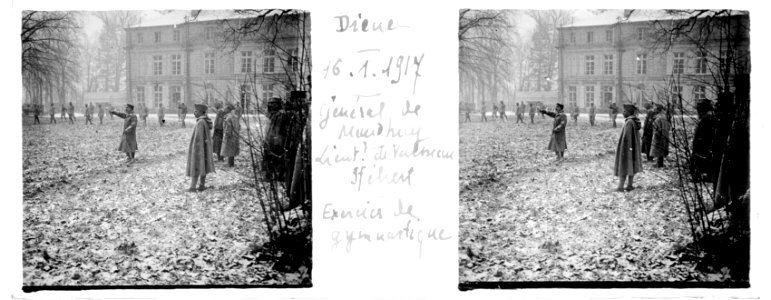 Diene
16.1.1917
Général de
Maud'huy
Lieut! de
Hébert
Exercice de
gymnastique